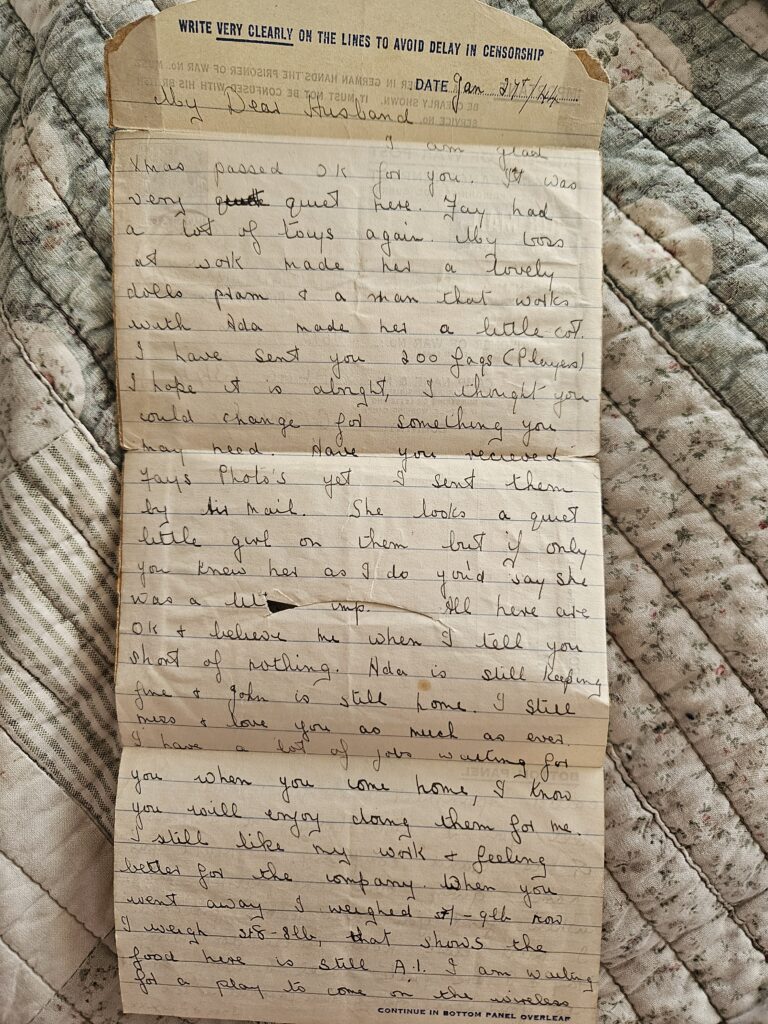 WRITE VERY CLEARLY ON THE LINES TO AVOID DELAY IN CENSORSHIP
DATE Jan 27th/44
My Dear Husband
I am glad
Xmas passed OK for you. It was
very quiet here. Fay had
a lot of toys again. My boss
at work made her a lovely
dolls pram & a man that works
with Ada made her a little cot.
I have sent you 200 fags (Players)
I hope it is alright, I thought you
could change for something you
may need. Have you recieved
Fays Photo's yet I sent them
by Air Mail. She looks a quiet
little girl on them but if only
you knew her as I do you'd say she
was a imp. All here are
OK & believe me when I tell you
short of nothing. Ada is still keeping
fine & John is still home. I still
miss & love you as much as ever.
I have a lot of jobs waiting for
you when you come home, I know
you will enjoy doing them for me.
I still like my work & feeling
better for the company. When you
went away I weighed - 9lb now
I weigh - 8lb, that shows the
food here is still A.1. I am waiting
for a play to come on the wireless
CONTINUE IN BOTTOM PANEL OVERLEAF